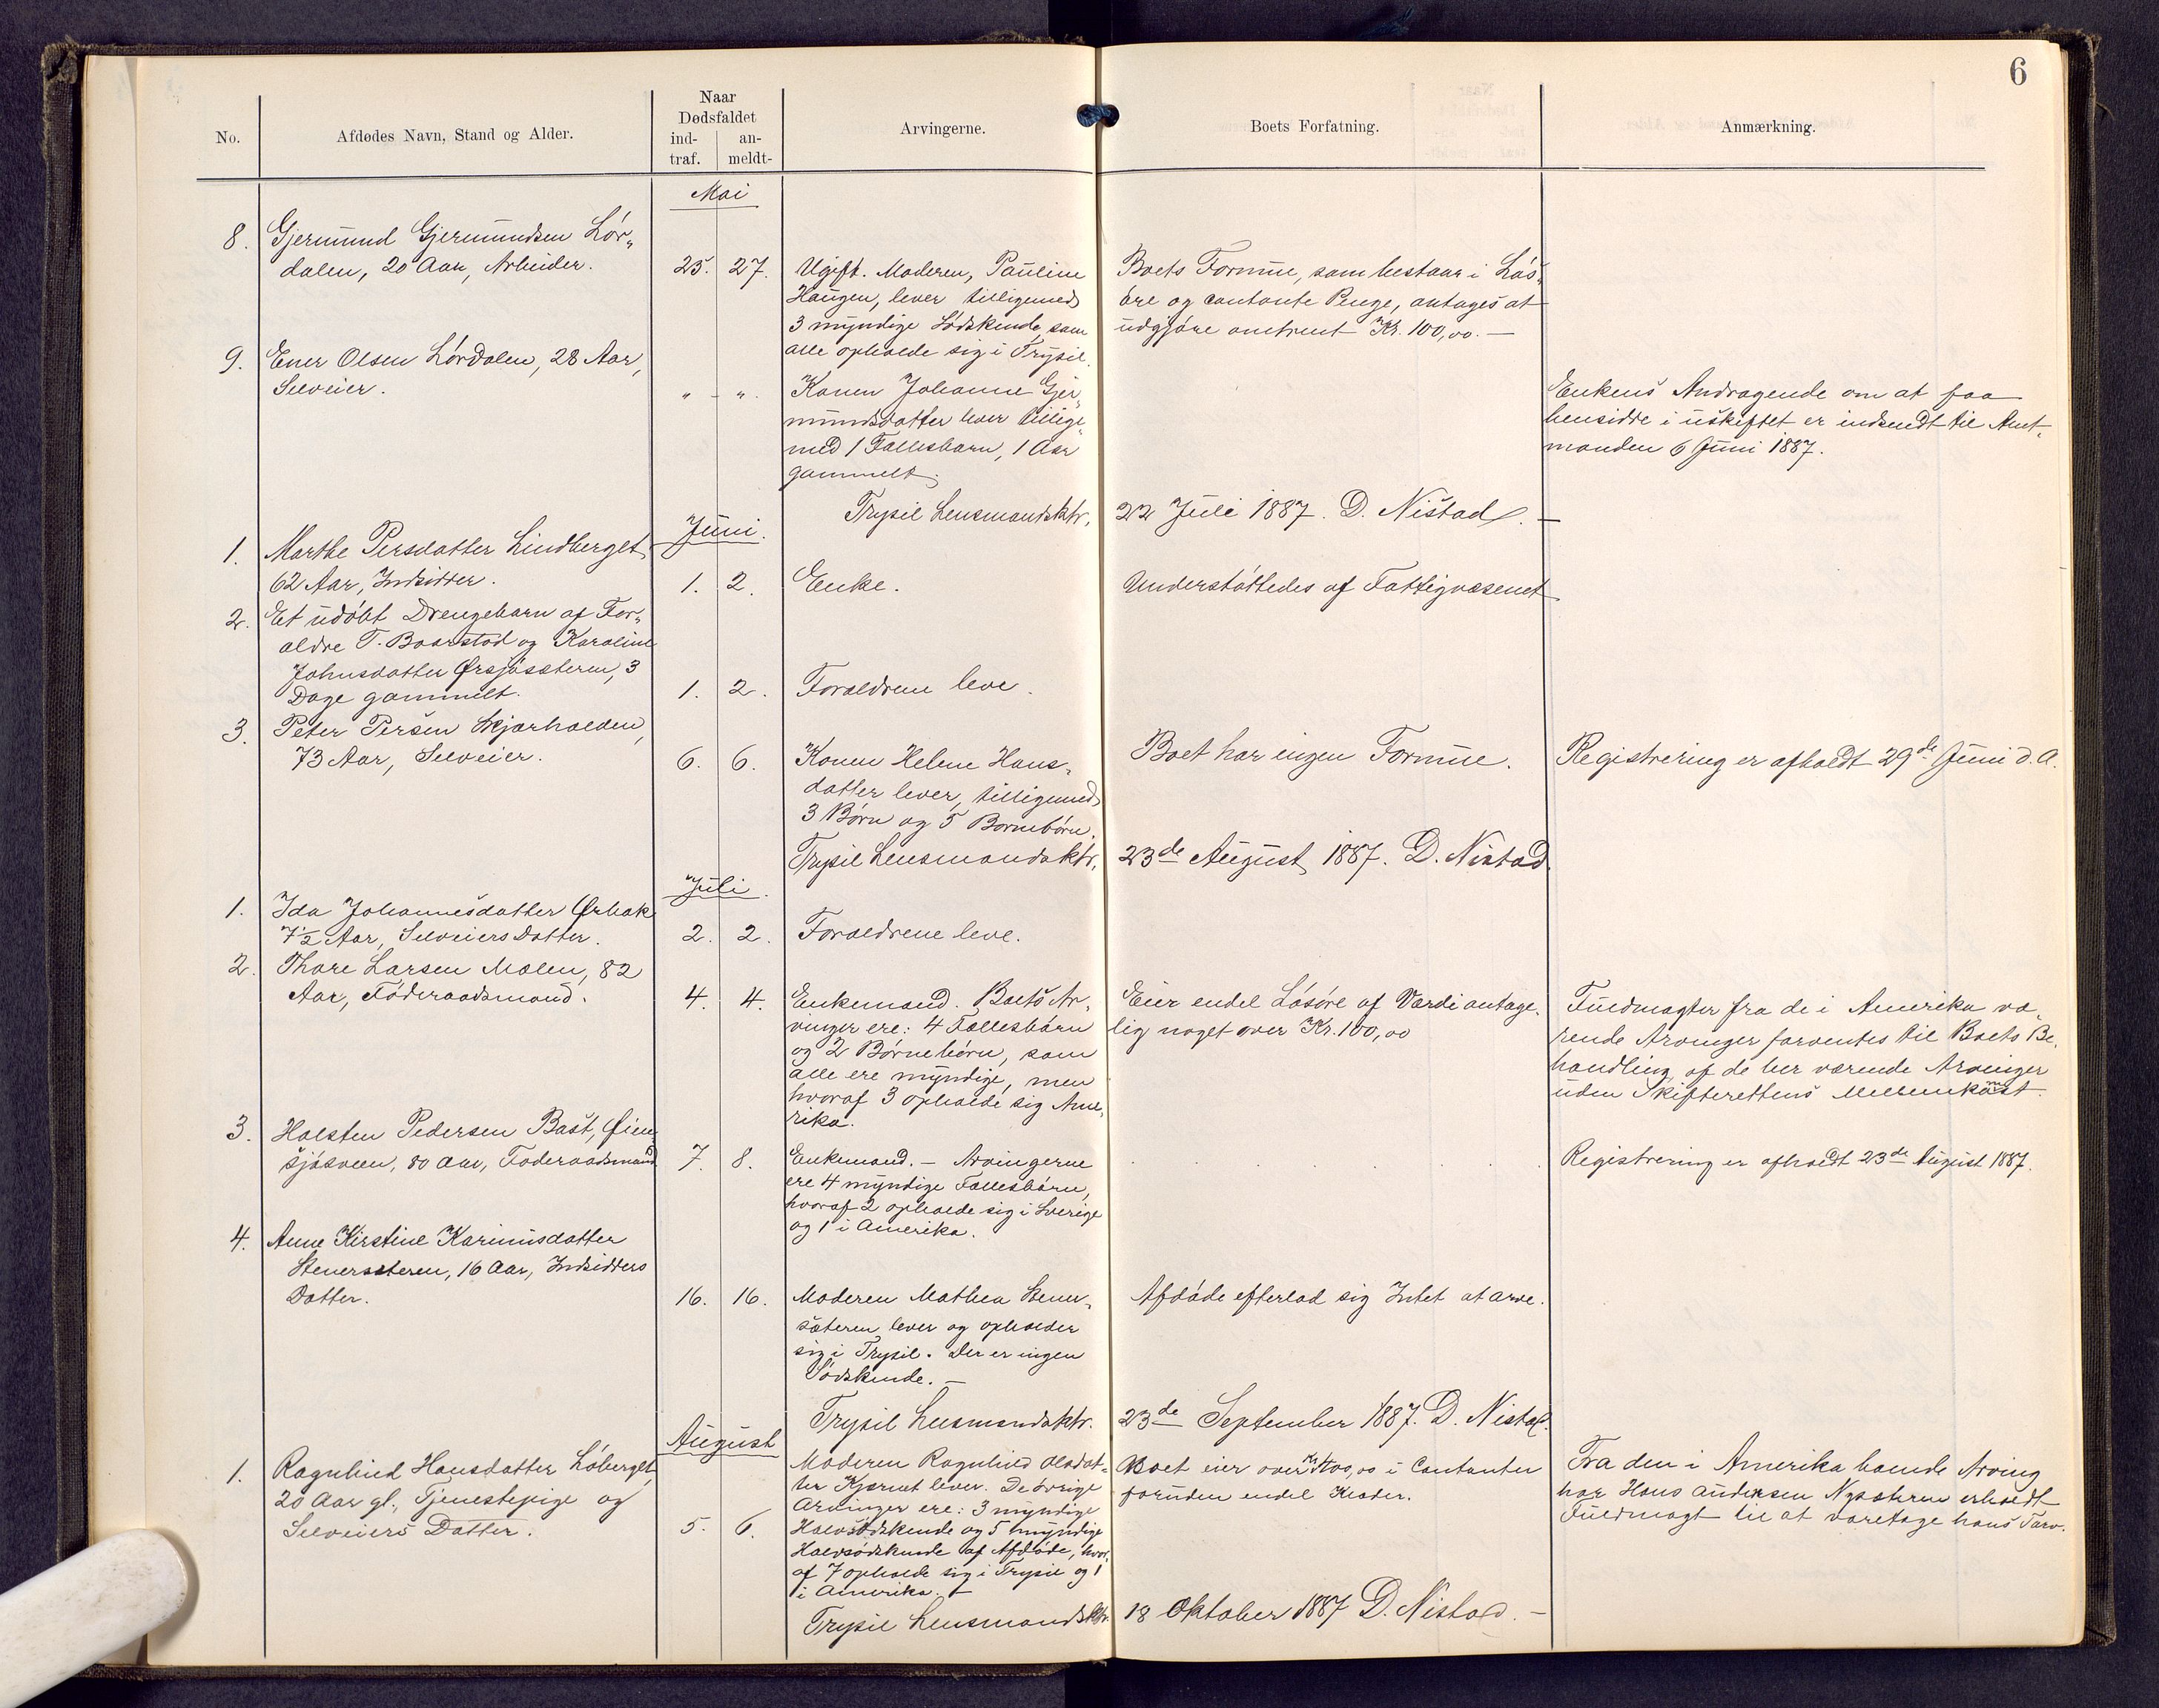 6
No.
Afdødes Navn, Stand og Alder.
Naar
Dødsfaldet
ind-
traf.
an-
meldt-
Arvingerne.
Boets Forfatning.
Anmærkning.
Mai
8. Gjermund Gjermundsen Lør„
dalen, 20 Aar, Arbeider.
25. 27.
Ugift. Moderen, Pauline
Haugen, lever tilligemed
3 myndige Sødskende, som
alle opholde sig i Trysil.
Boets Formue, som bestaar i Løs„
øre og contante Penge, antages at
udgjøre omtrent Kr. 100,00. —
9. Ener Olsen Lørdalen, 28 Aar,
Selveier.
„ - „.
Konen Johanne Gjer„
mundsdatter lever tillige„
med 1 Fællesbarn, 1 Aar
gammelt.
Enkens Andragende om at faa
hensidde i uskiftet er indsendt til Amt„
manden 6 Juni 1887.
Trysil Lensmandsktr. 22 Juli 1887. D. Nistad. —
Juni.
1. Marthe Persdatter Lindberget,
62 Aar, Indsidder.
1. 2.
Enke.
Understøttedes af Fattigvæsenet
2. Et udøbt Drengebarn af For„
ældre T. Baarstad og Karoline
Johnsdatter Ørsjøsæteren, 3
Dage gammelt.
1. 2.
Forældrene leve.
3. Peter Persen Skjærholden,
73 Aar, Selveier.
6. 6.
Konen Helene Hans„
datter lever, tilligemed
3 Børn og 5 Børnebørn.
Boet har ingen Formue.
Registrering er afholdt 29de Juni d. A.
Trysil Lensmandsktr. 23de August 1887. D. Nistad.
Juli.
1. Ida Johannesdatter Ørbak
7½ Aar, Selveiers Datter.
2. 2.
Forældrene leve.
2. Thore Larsen Molen, 82
Aar, Føderaadsmand.
4. 4.
Enkemand. Boets Ar„
vinger ere: 4 Fællesbørn
og 2 Børnebørn, som
alle ere myndige, men
hvoraf 3 opholde sig Ame„
rika.
Eier endel Løsøre af Værdi antage„
lig noget over Kr. 100,00
Fuldmagter fra de i Amerika væ„
rende Arvinger forventes til Boets Be„
handling af de her værende Arvinger
uden Skifterettens Mellemkomst.
3. Holsten Pedersen Bast, Øien„
sjøsveen, 80 Aar, Føderaadsmand
7. 8.
Enkemand. — Arvingerne
ere 4 myndige Fællesbørn,
hvoraf 2 opholde sig i Sverige
og 1 i Amerika.
Registrering er afholdt 23de August 1887.
4. Anne Kirstine Karinusdatter
Stenersæteren, 16 Aar, Indsidders
Datter.
16. 16.
Moderen Mathea Stener„
sæteren lever og opholder
sig i Trysil. Der er ingen
Sødskende. —
Afdøde efterlod sig Intet at arve.
Trysil Lensmandsktr. 23de September 1887. D. Nistad.
August
1. Ragnhild Hansdatter Løberget
20 Aar gl., Tjenestepige og
Selveiers Datter.
5. 6.
Moderen Ragnhild Olsdat„
ter Kjærnet lever. De øvrige
Arvinger ere: 3 myndige
Helsødskende og 5 myndige
Halvsødskende af Afdøde, hvor„
af 7 opholde sig i Trysil og 1
i Amerika. —
Boet eier over Kr. 100,00 i Contanter
foruden endel Klæder.
Fra den i Amerika boende Arving
har Hans Andersen Nysæteren erholdt
Fuldmagt til at varetage hans Tarv.
Trysil Lensmandsktr. 18 Oktober 1887 D. Nistad. —